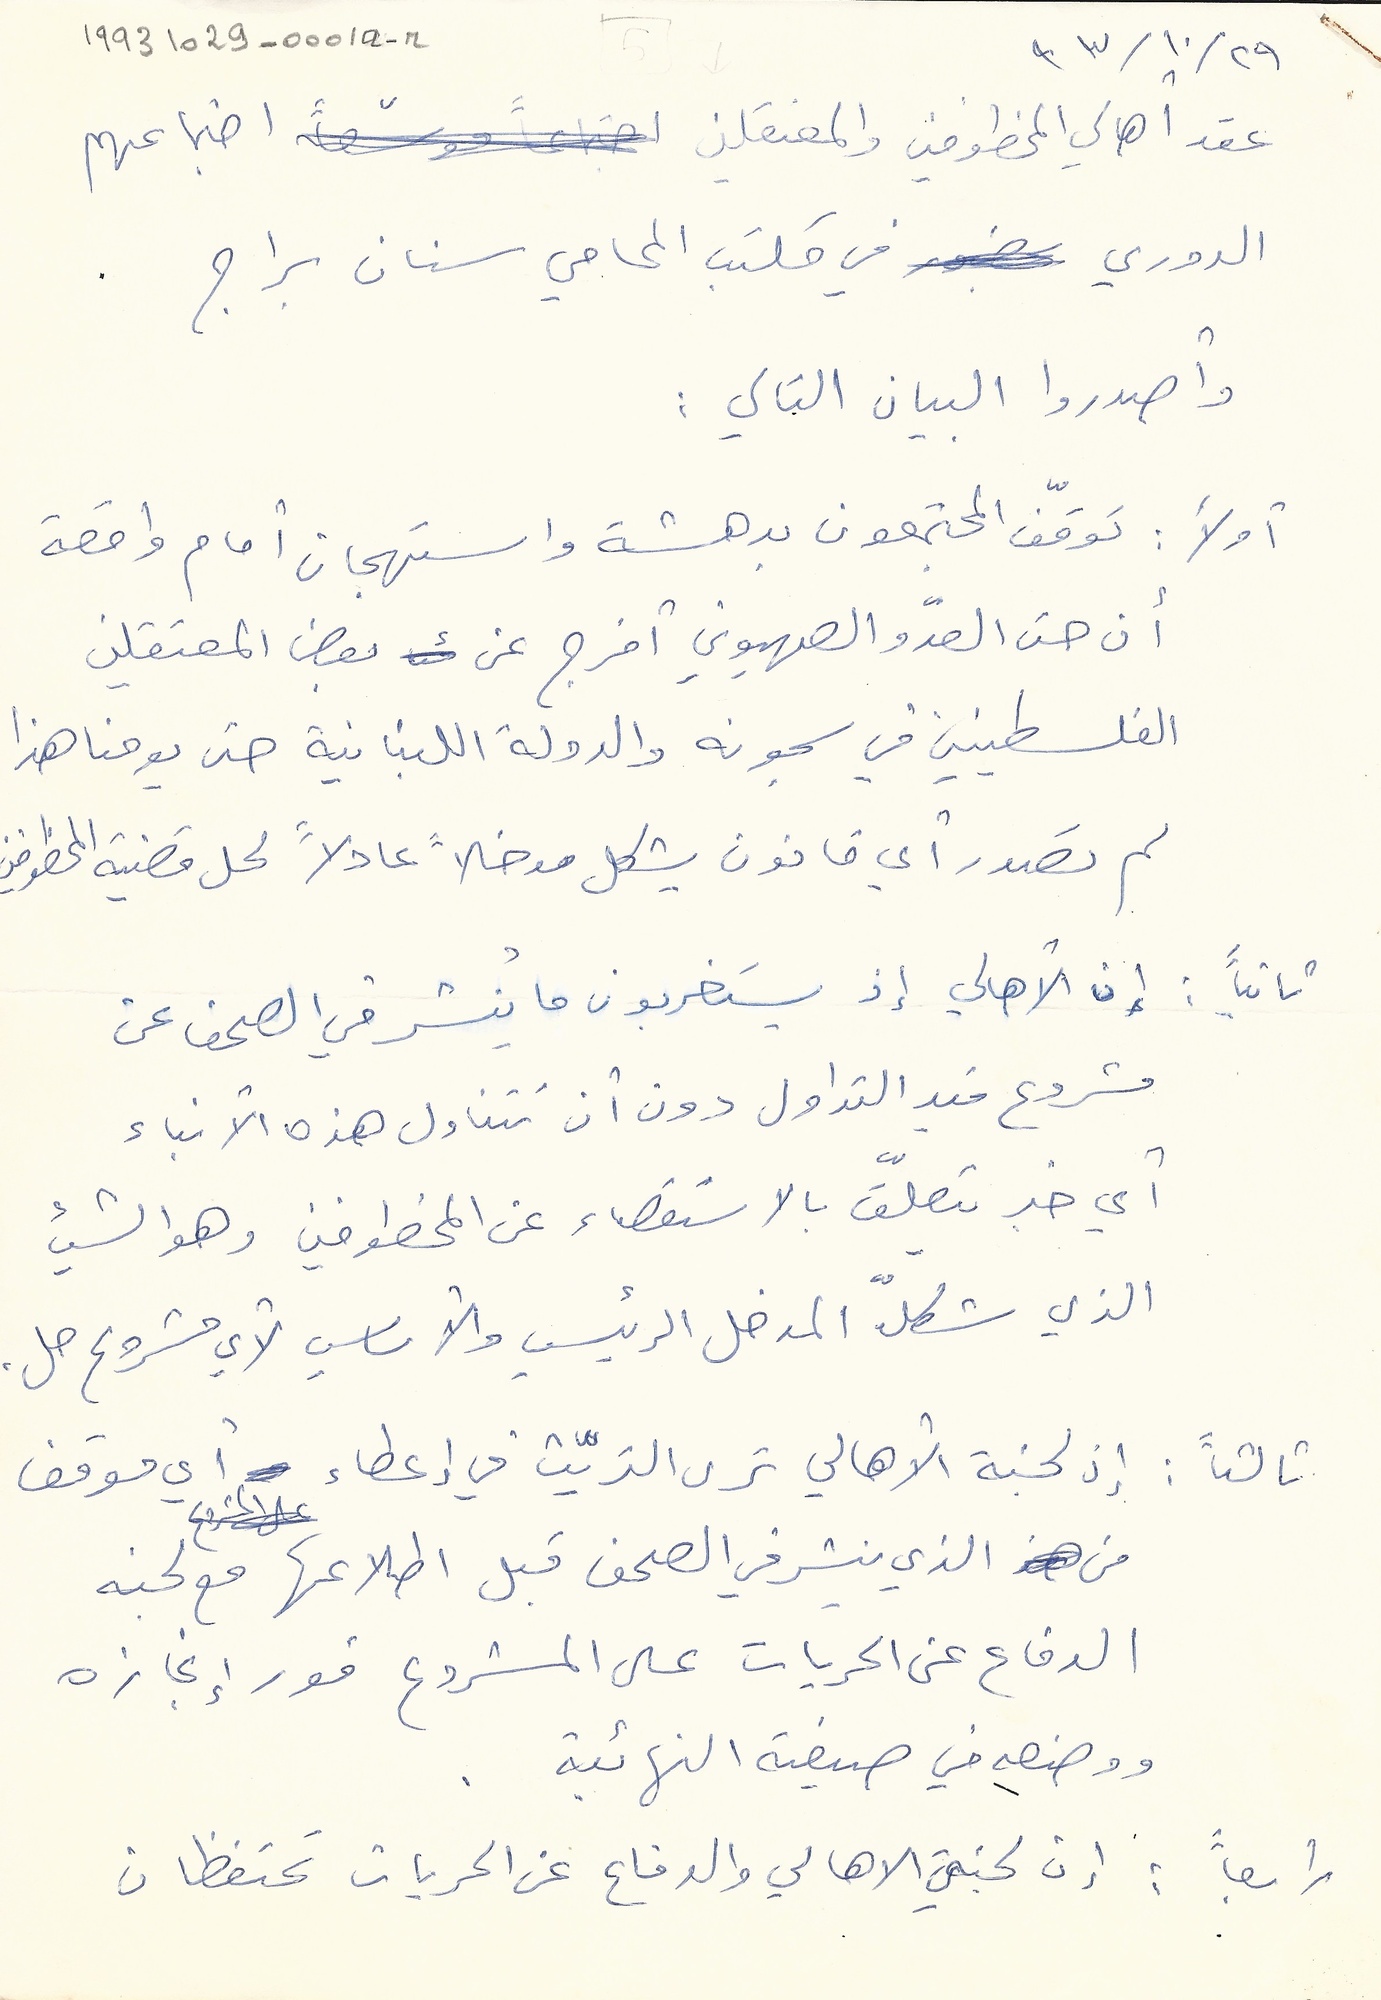 19931029-0001a-r
٩٣/١٠/٢٩
عقد أهالي المخطوفين والمعتقلين اجتماعاً موسّعاً اجتماعهم
الدوري في مكتب المحامي سنان براج
وأصدروا البيان التالي :
أولاً : توقّف المجتمعون بدهشة واستهجان أمام واقعة
أن حتى العدّو الصهيوني أفرج عن بعض المعتقلين
الفلسطينيين في سجونه والدولة اللبنانية حتى يومنا هذا
لم تصدر أي قانون يشكل مدخلاً عادلاً لحل قضية المخطوفين
ثانياً : إن الأهالي إذ يستغربون ما يُنشر في الصحف عن
مشروع قيد التداول دون أن تتناول هذه الأنباء
أي خبر يتعلّق بالاستقصاء عن المخطوفين وهو الشيء
الذي شكلّ المدخل الرئيسي والأساسي لأي مشروع حل .
ثالثاً : إن لجنة الأهالي ترى التريّث في إعطاء أي موقف
على المشروع
من هذا الذي ينشر في الصحف قبل اطلاعها مع لجنة
الدفاع عن الحريات على المشروع فور إنجازه
ووضعه في صيغته النهائية .
رابعاً : إن لجنتي الاهالي والدفاع عن الحريات تحتفظان